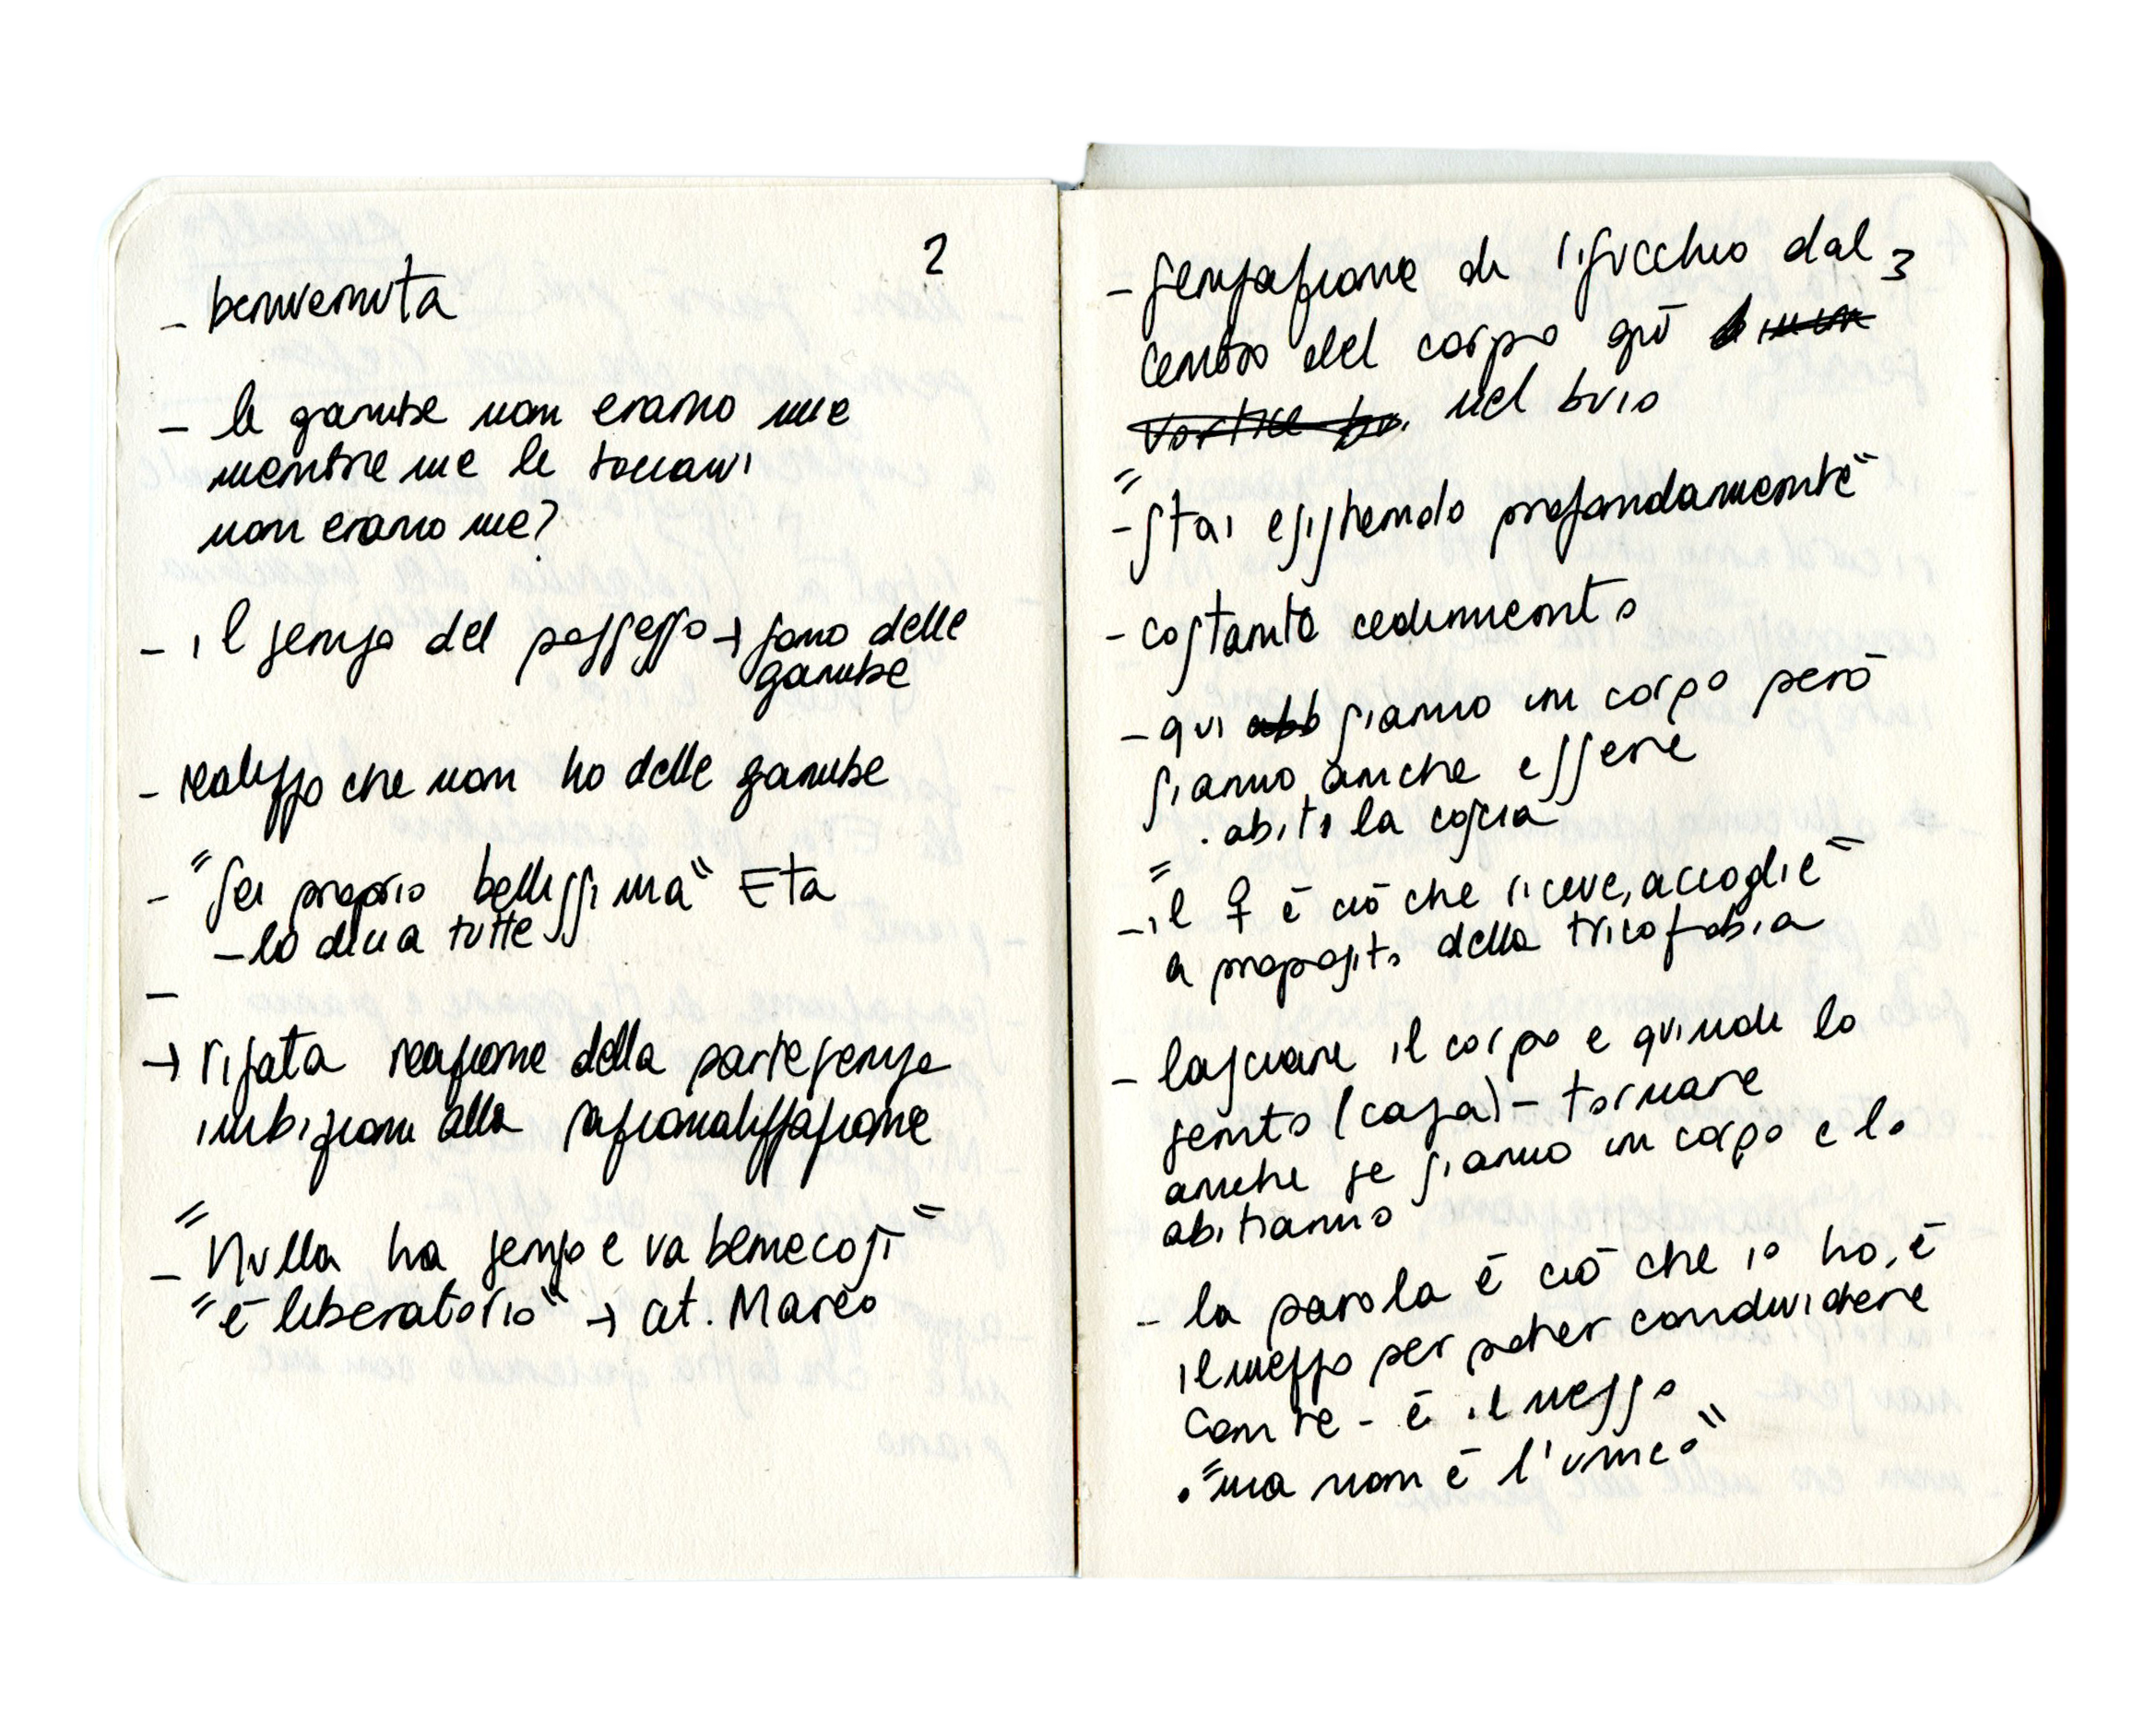 2
- benvenuta
- le gambe non erano mie
mentre me le toccavi
non erano me?
- il senso del possesso → sono delle
gambe
- realizzo che non ho delle gambe
- "sei proprio bellissima" Eta
- lo dici a tutte
-
→ risata reazione della parte senza
inibizioni alla razionalizzazione
- "Nulla ha senso e va bene così"
"è liberatorio" → cit. Marco
3
- sensazione di risucchio dal
centro del corpo giù
vortice bu. nel buio
- "stai esistendo profondamente"
- costante cedimento
- qui abb siamo un corpo però
siamo anche essere
. abiti la coscia
- "il ♀ è ciò che riceve, accoglie"
a proposito della tricofobia
- lasciare il corpo e quindi lo
sento (casa) - tornare
anche se siamo un corpo e lo
abitiamo
- la parola è ciò che io ho, è
il mezzo per poter condividere
con te - è il mezzo
. "ma non è l'unico"